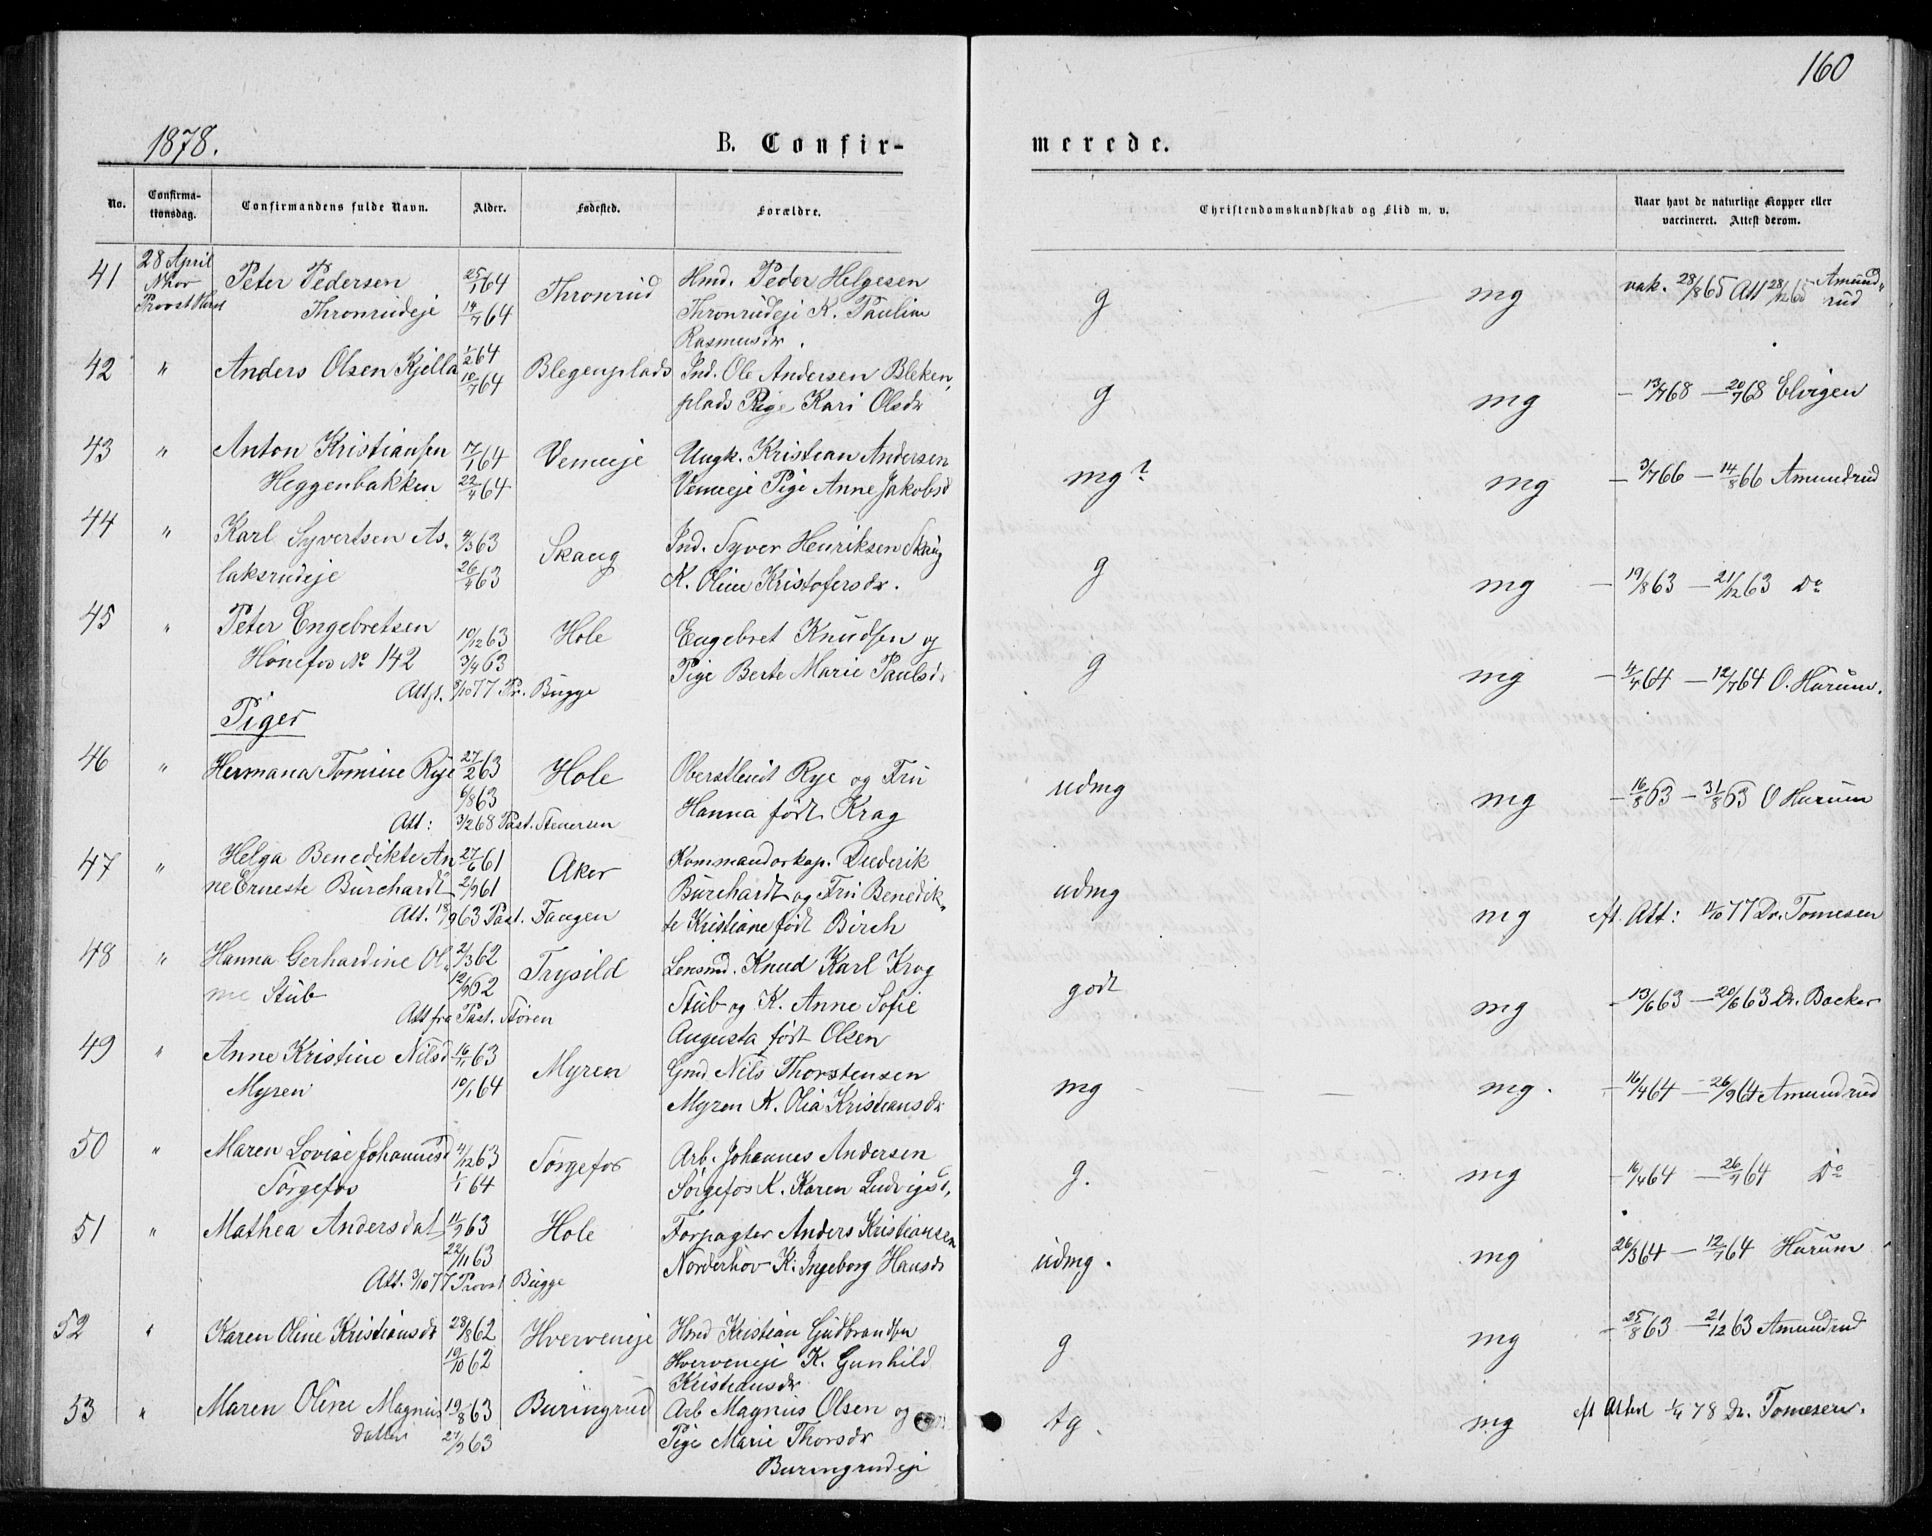 160
1878.
B. Confirmerede.
No.
Confirmationsdag.
Confirmandens fulde Navn.
Alder.
Fødested.
Forældre.
Christendomskundskab og Flid m. v.
Naar havt de naturlige Kopper eller
vaccineret. Attest derom.
41 28 April Peter Pedersen 25/1 64 Thronrud Hmd. Peder Helgesen g mg vak. 28/8 65 Att 28/12 65 Amund-
Nhov Thronrudeje 14/7 64 Thronrudeje K. Pauline rud
Provst
Rasmusdr.
42 " Anders Olsen Kjella 1/2 64 Blegenplads Ind. Ole Andersen Bleken, g mg — 13/7 68 — 20/7 68 Elvigen
10/7 64 plads Pige Kari Olsdr
43 " Anton Kristiansen 17/1 64 Vemeje Ungk. Kristian Andersen mg? mg — 3/7 66 — 14/8 66 Amundrud
Heggenbakken 22/4 64 Vemeje Pige Anne Jakobsd
44 " Karl Syvertsen As- 4/3 63 Skaug Ind. Syver Henriksen Skaug g mg — 19/8 63 — 21/12 63 Do
laksrudeje 26/4 63 K. Oline Kristofersdr.
45 " Peter Engebretsen 10/12 63 Hole Engebret Knudsen og g mg — 4/7 64 — 12/7 64 O. Harum.
Hönefos No 142 3/4 63 Pige Berte Marie Paulsd.
Att. 8/10 77 Pr. Bugge
Piger
46 " Hermana Tomine Rye 27/2 63 Hole Oberstleut Rye og Fru udmg mg — 16/8 63 — 31/8 63 O Harum
6/8 63 Hanna født Krag
Att: 3/2 68 Past. Stenersen
47 " Helga Benedikte An 27/6 61 Aker Kommandorkap. Duderik udmg mg eft. Att: 11/10 77 Dr. Tomesen
ne Erneste Burchardt 21/9 61 Burchardt og Fru Benedik-
Att. 18/9 63 Past. Fangen te Kristiane født Birch
48 " Hanna Gerhardine Ol- 21/3 62 Trysild Lensmd. Knud Karl Krog godt mg — 13/6 63 — 20/6 63 Dr. Backer
me Stub 12/9 62 Stub og K. Anne Sofie
Att fra Past. Støren Augusta født Olsen
49 " Anne Kristine Nilsd 16/11 63 Myren Gmd. Nils Thorstensen mg mg. — 16/4 64 — 26/9 64 Amundrud
Myren 10/1 64 Myren K. Olia Kristiansdr
50 " Maren Lovise Johannesd 11/12 63 Sørgefos Arb. Johannes Andersen g. mg — 16/4 64 — 26/9 64 Do
Sørgefos 1/1 64 Sørgefos K. Karen Ludvigsd,
51 " Mathea Andersdat 11/9 63 Hole Forpagter Anders Kristiansen udmg. mg 26/3 64 — 12/7 64 Harum
22/11 63 Norderhov K. Ingeborg Hansdr
Att. 3/10 77 Provst Bugge
52 " Karen Oline Kristiansdr 28/8 62 Hverveneje Hmd Kristian Gudbrandsen g mg — 25/8 63 — 21/12 63 Amundrud
19/10 62 Hverveneje K. Gunhild
Kristiansdr
53 " Maren Oline Magnus 19/8 63 Buringrud Arb Magnus Olsen og tg. mg eft Attest 1/4 78 Dr. Tomesen.
datter 27/9 63 Pige Marie Thorsdr
Buringrudeje